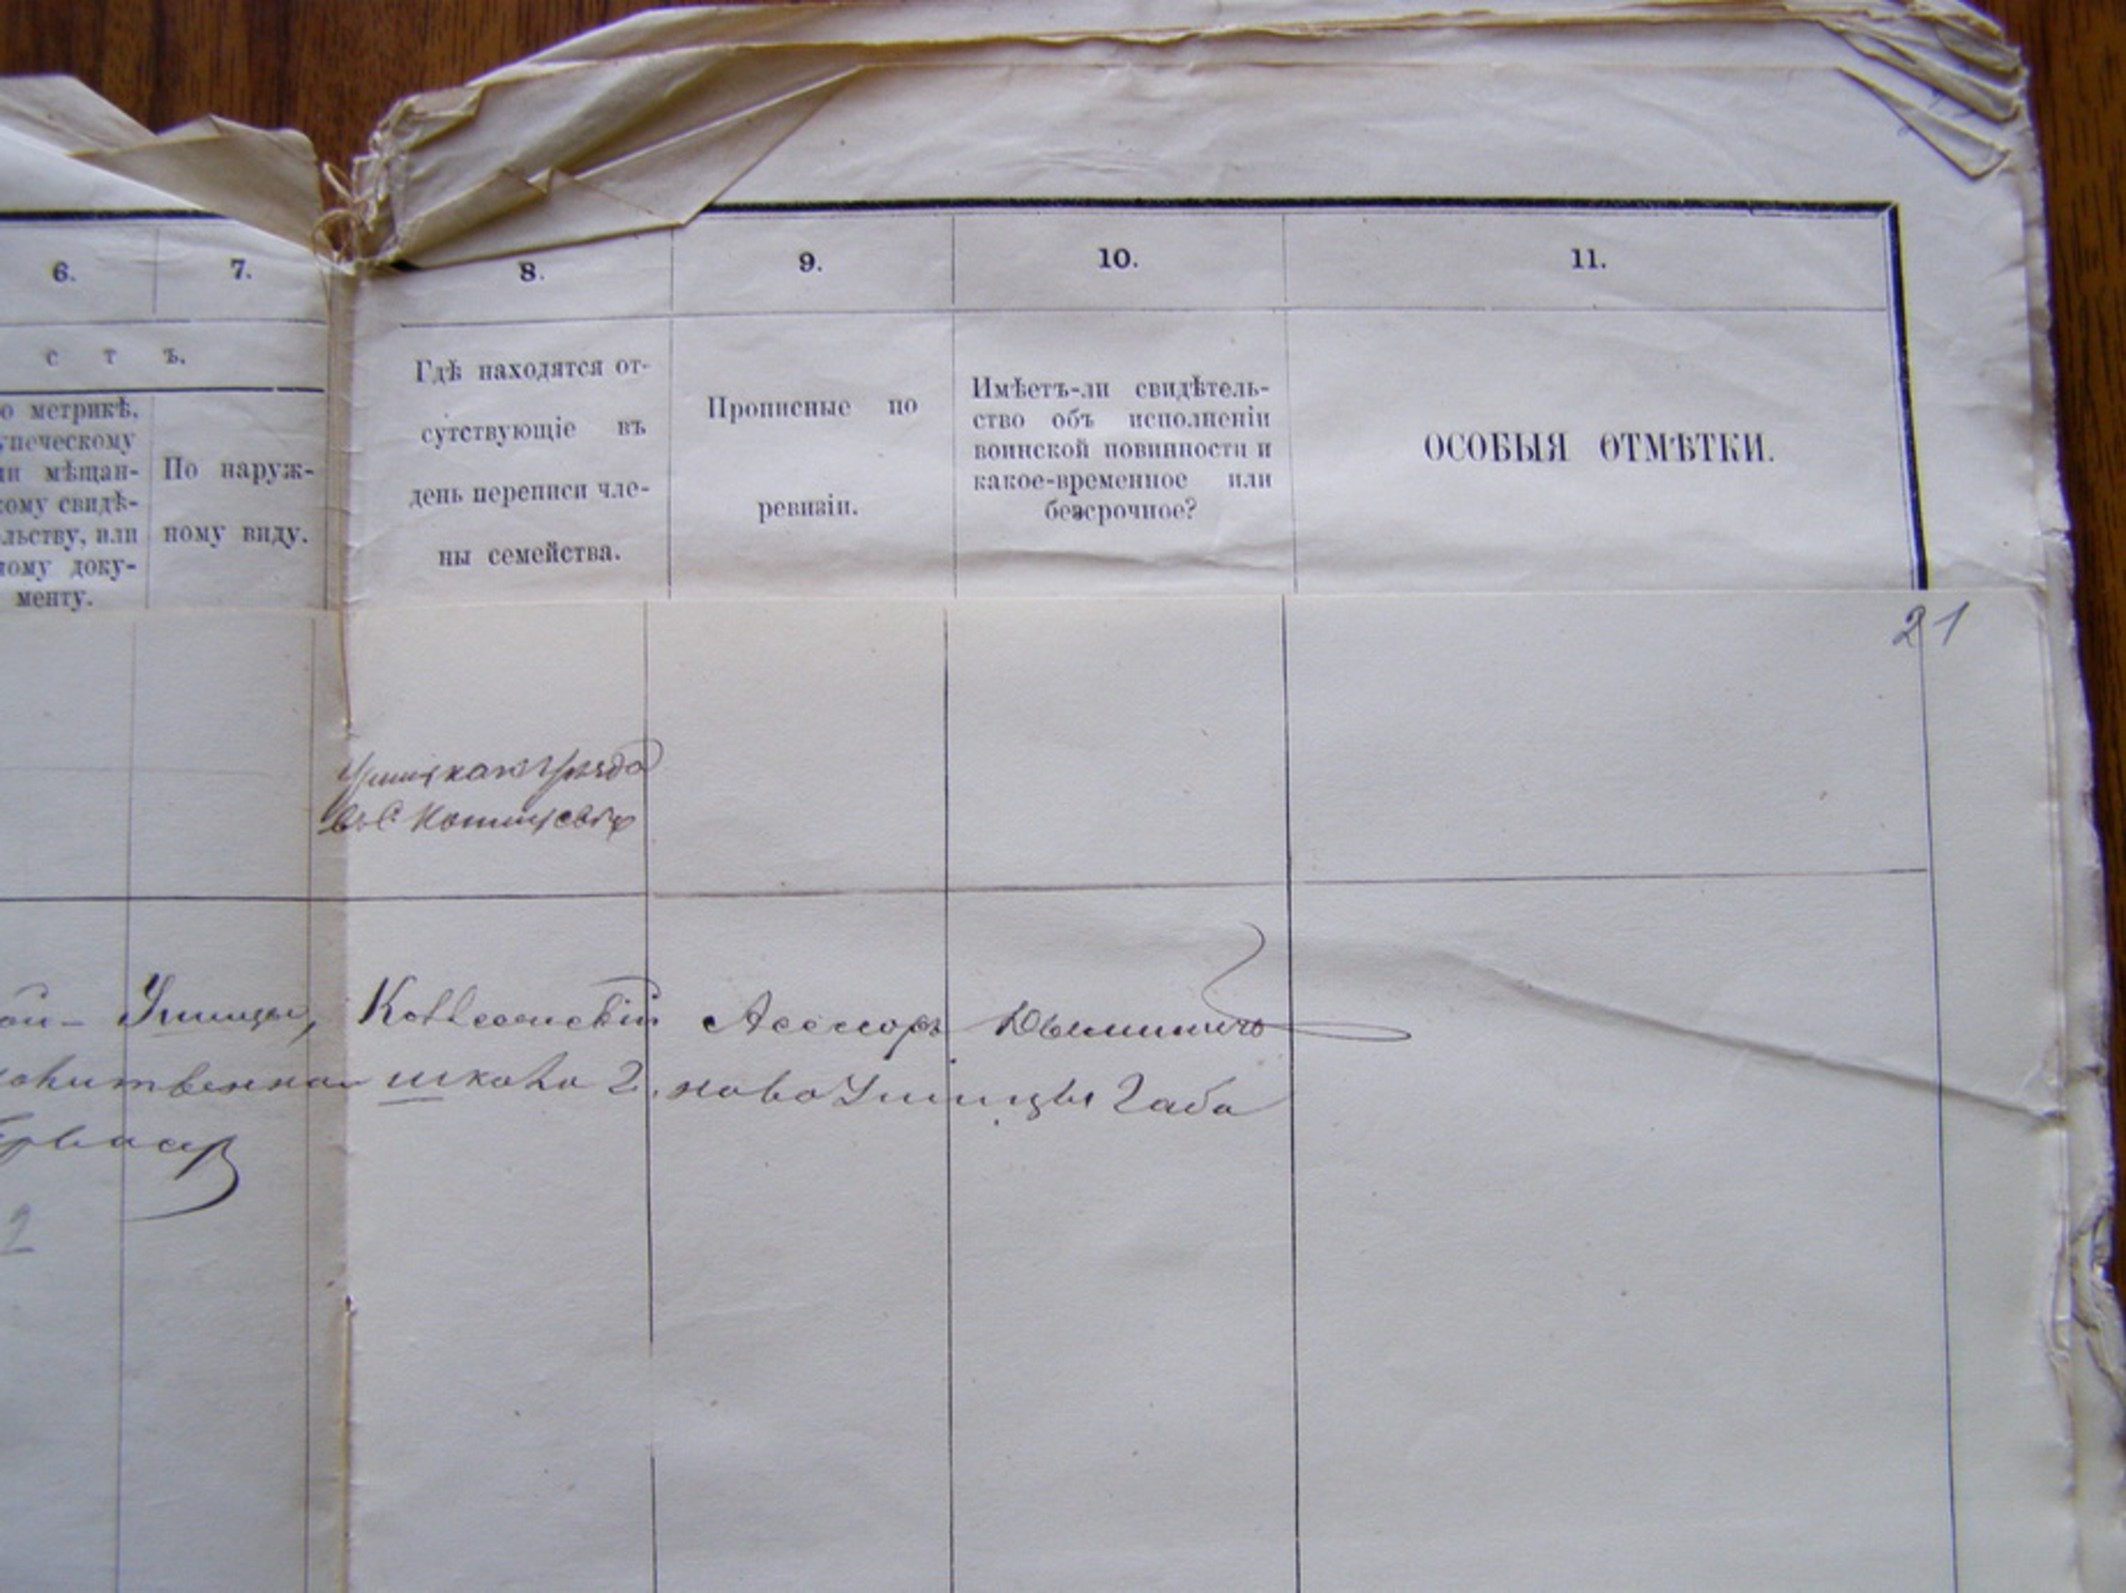 6. 7. 8. 9. 10. 11.
с т ъ.
о метрикѣ,
упеческому
ли мѣщан-
кому свидѣ-
льству, или
ному доку-
менту.
По наруж-
ному виду.
Гдѣ находятся от-
сутствующіе въ
день переписи чле-
ны семейства.
Прописные по
ревизіи.
Имѣетъ-ли свидѣтель-
ство объ исполненіи
воинской повинности и
какое-временное или
безсрочное?
ОСОБЫЯ ОТМѢТКИ.
21
Ушицкаго уѣзда
въ С
Ушицы, Коллежскій Асессоръ
школы г. Ново Ушицы
2